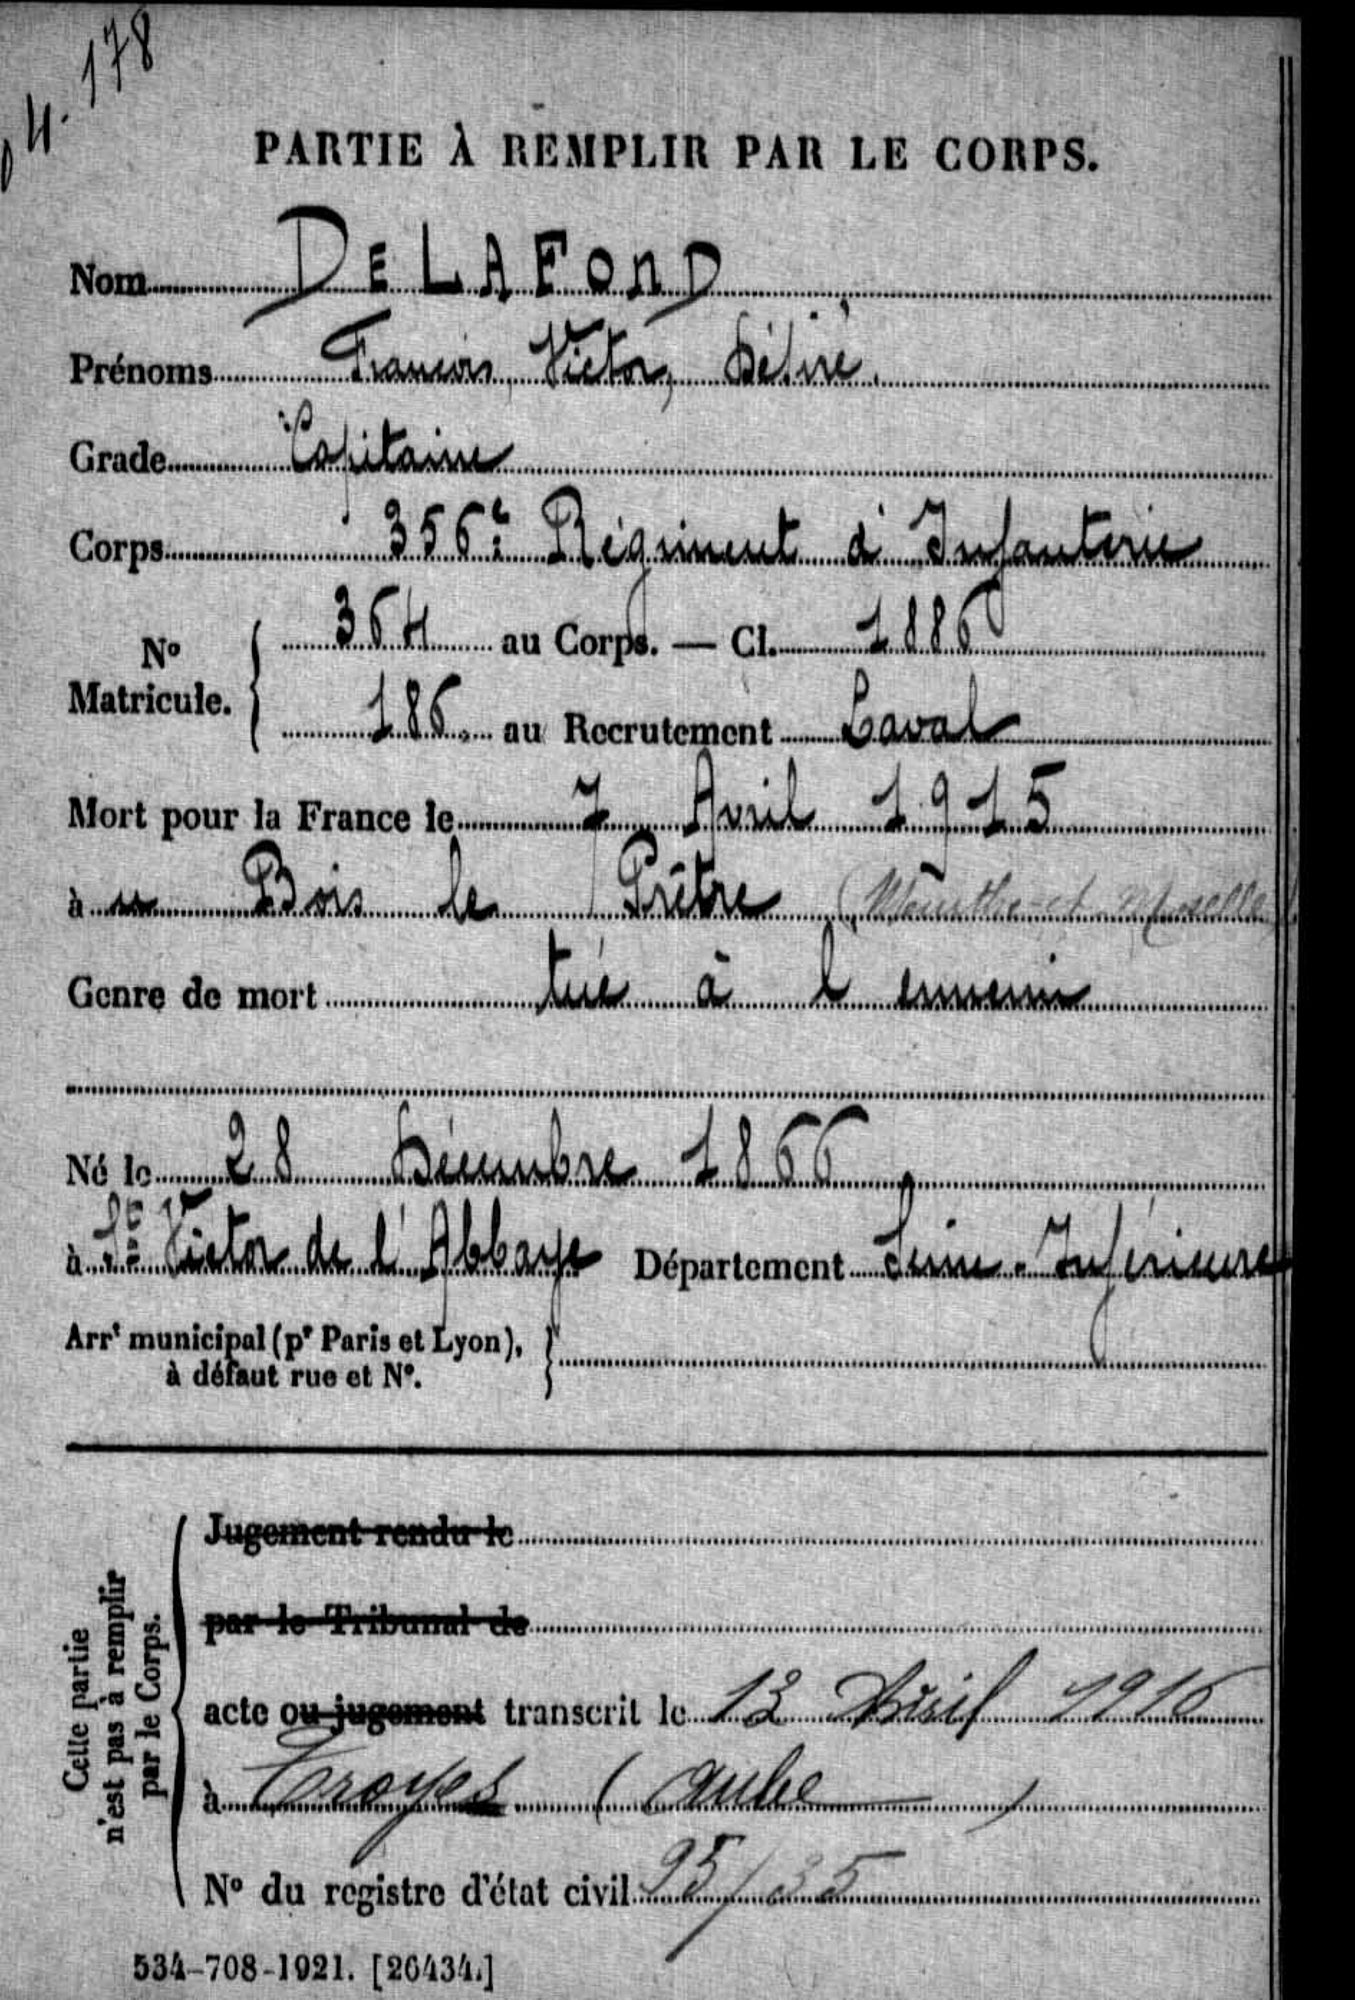 4. 178
PARTIE À REMPLIR PAR LE CORPS.
Nom DELAFOND
Prénoms François, Victor, Désiré.
Grade Capitaine
Corps 356e Régiment d'Infanterie
No Matricule. 364 au Corps. — Cl. 1886
186. au Recrutement Laval
Mort pour la France le 7 Avril 1915
à au Bois le Prêtre (Meurthe-et-Moselle)
Genre de mort tué à l'ennemi
Né le 28 Décembre 1866
à St Victor de l'Abbaye Département Seine-Inférieure
Arrt municipal (pr Paris et Lyon),
à défaut rue et No.
Cette partie
n'est pas à remplir
par le Corps.
Jugement rendu le
par le Tribunal de
acte ou jugement transcrit le 12 Avril 1916
à Troyes (Aube)
No du registre d'état civil 95/35
534-708-1921. [26434.]